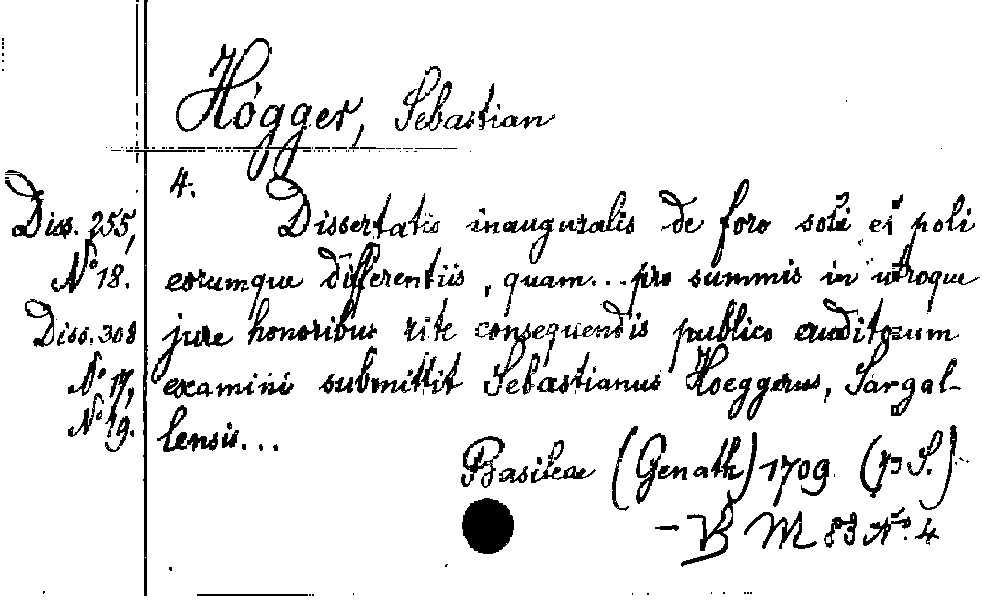 Högger, Sebastian
4.
Diss. 255,
No 18.
Diss. 308
No 17,
No 19.
Dissertatio inauguralis de foro soli et poli
eorumque differentiis, quam... pro summis in utroque
jure honoribus rite consequendis publico eruditorum
examini submittit Sebastianus Hoeggerus, Sangal-
lensis...
Basileae (Genath) 1709 S.)
- B M 83 No. 4